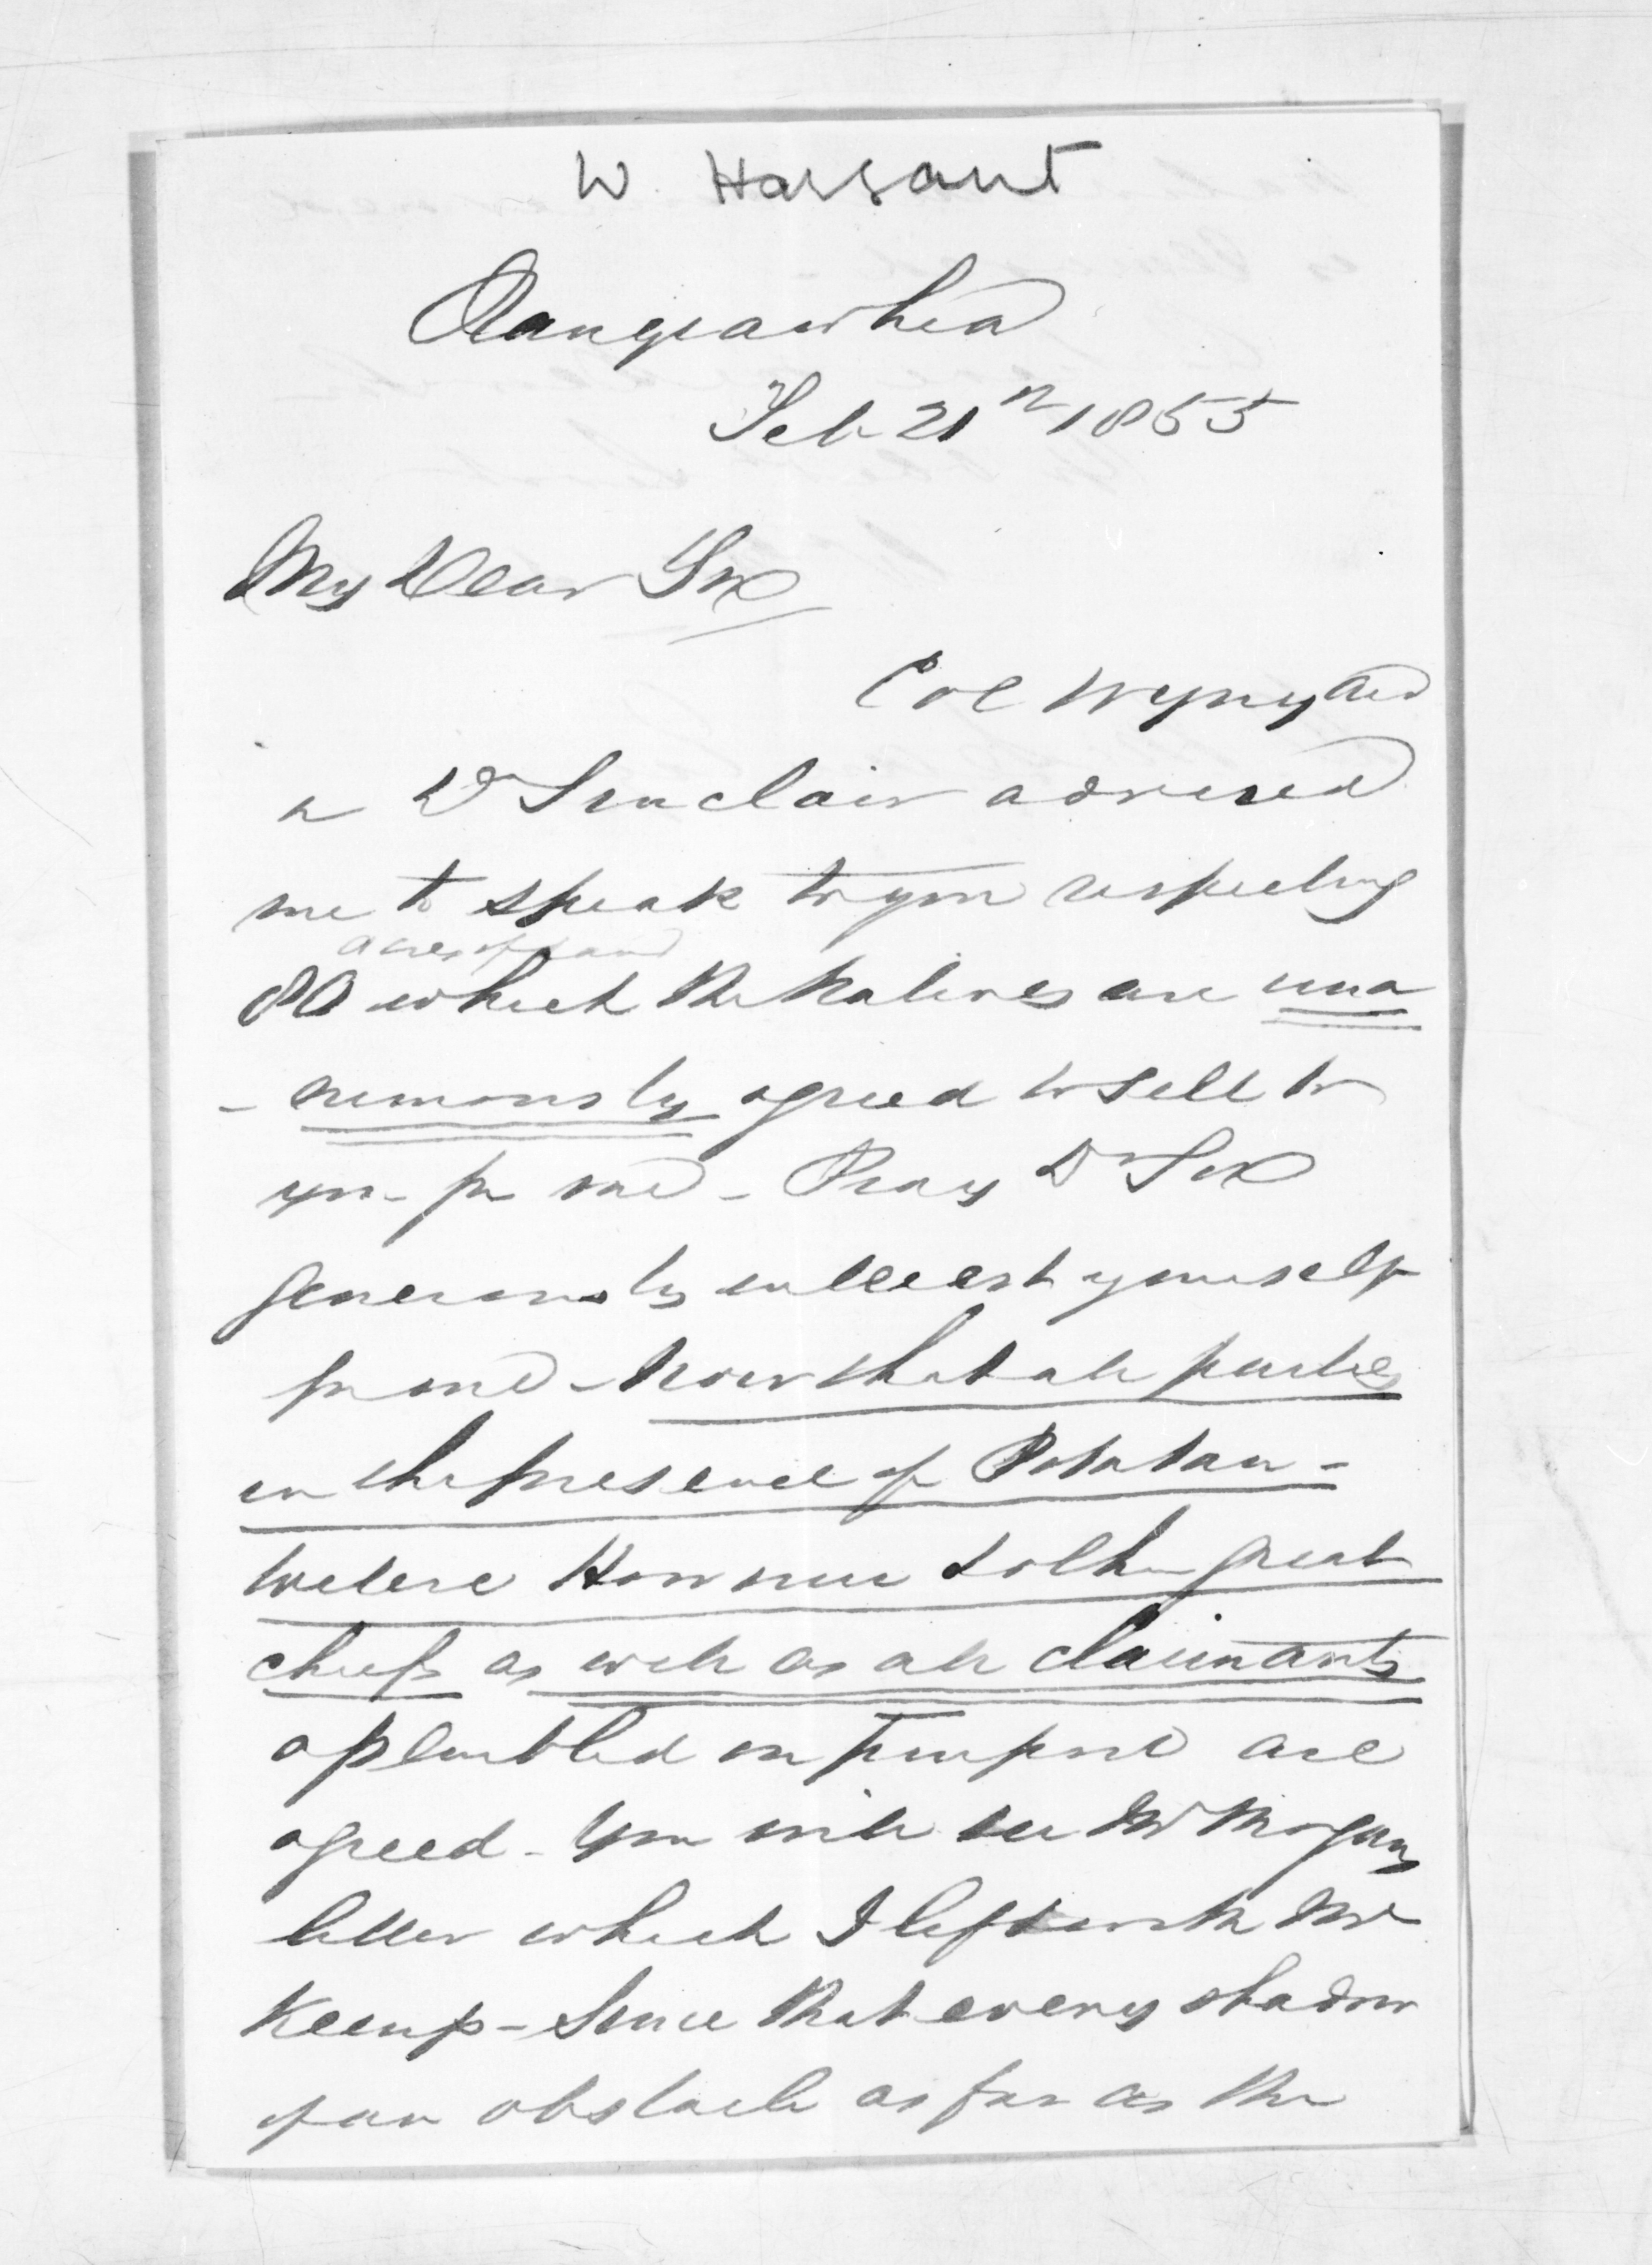 W. Harsant
Rangiawhia
Feb 21st 1855
My Dear Sir
Col Wynyard
& Dr Sinclair advised
me to speak to you respecting
acres of land
80 which the Natives are una
- nimously agreed to sell to
you for me - Pray Dr Sir
generously interest yourself
for me - Now that all parties
in the presence of Potatau -
Wetere & other great
chiefs as well as all claimants
assembled on purpose are
agreed - You will see Mr Morgans
letter which I left with Mr
Kemp - Since that every shadow
of an obstacle as far as the